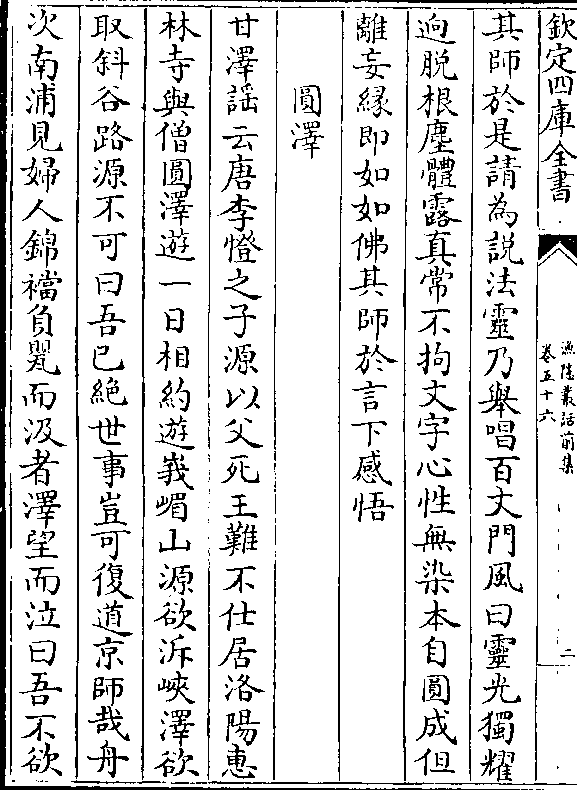 欽定四庫全書
漁隱叢話前集
卷五十六
二
其師於是請為説法靈乃舉唱百丈門風曰靈光獨耀
逈脱根塵體露真常不拘文字心性無染本自圓成但
離妄緣即如如佛其師於言下感悟
圓澤
甘澤謡云唐李憕之子源以父死王難不仕居洛陽惠
林寺與僧圓澤遊一日相約遊峩嵋山源欲泝峽澤欲
取斜谷路源不可曰吾已絶世事豈可復道京師哉舟
次南浦見婦人錦襠負甖而汲者澤望而泣曰吾不欲